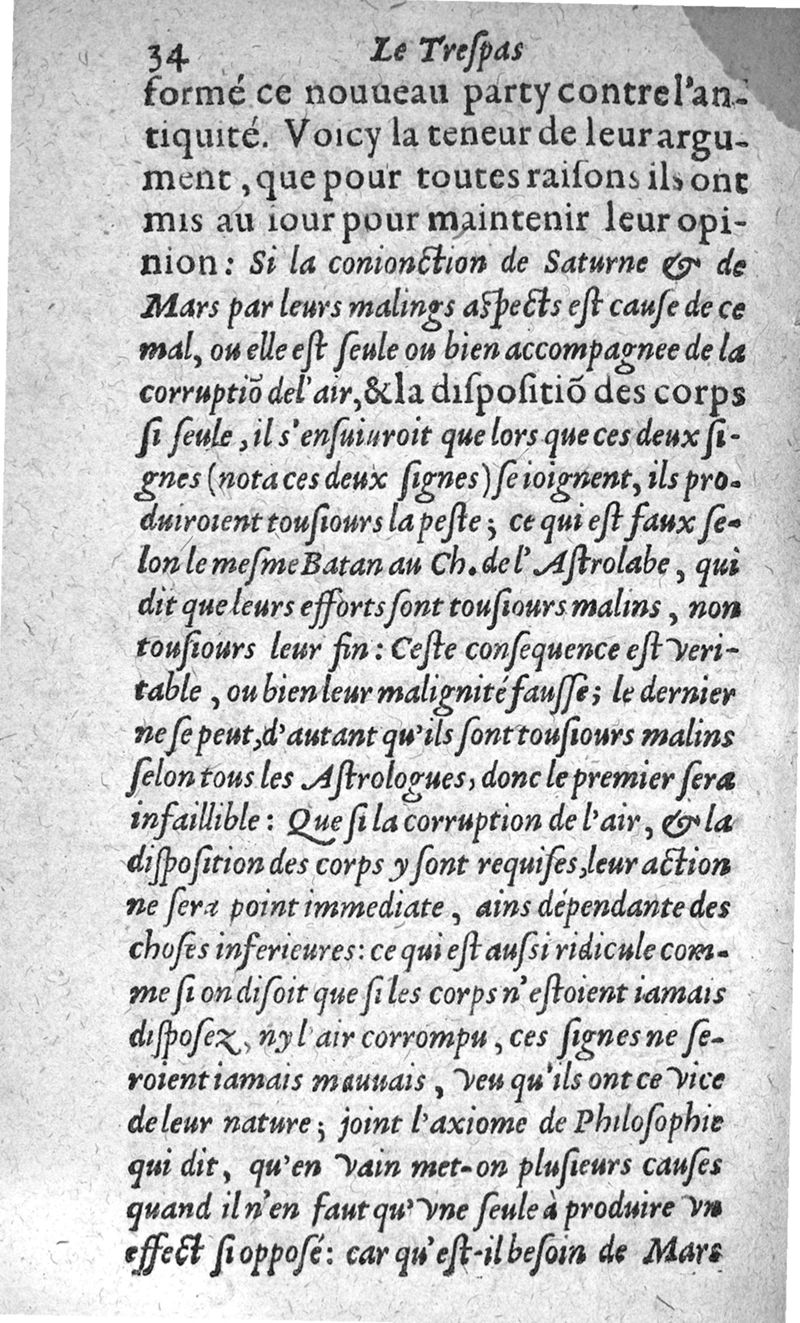 34 Le Treſpas
formé ce nouueau party contre l'an-
tiquité. Voicy la teneur de leur argu-
ment, que pour toutes raiſons ils ont
mis au iour pour maintenir leur opi-
nion : Si la conionction de Saturne & de
Mars par leurs malings aſpects eſt cauſe de ce
mal, ou elle eſt ſeule ou bien accompagnee de la
corruptiõ de l'air, & la diſpoſitiõ des corps
ſi ſeule, il s'enſuiuroit que lors que ces deux ſi-
gnes (nota ces deux ſignes) ſe ioignent, ils pro-
duiroient touſiours la peſte ; ce qui eſt faux ſe-
lon le meſme Batan au Ch. de l'Aſtrolabe, qui
dit que leurs efforts ſont touſiours malins, non
touſiours leur fin : Ceſte conſequence eſt veri-
table, ou bien leur malignité fauſſe ; le dernier
ne ſe peut, d'autant qu'ils ſont touſiours malins
ſelon tous les Aſtrologues, donc le premier ſera
infaillible : Que ſi la corruption de l'air, & la
diſpoſition des corps y ſont requiſes, leur action
ne ſera point immediate, ains dépendante des
choſes inferieures : ce qui eſt auſsi ridicule com-
me ſi on diſoit que ſi les corps n'eſtoient iamais
diſpoſez, ny l'air corrompu, ces ſignes ne ſe-
roient iamais mauuais, veu qu'ils ont ce vice
de leur nature ; joint l'axiome de Philoſophie
qui dit, qu'en vain met-on pluſieurs cauſes
quand il n'en faut qu'vne ſeule à produire vn
effect ſi oppoſé : car qu'eſt-il beſoin de Mars